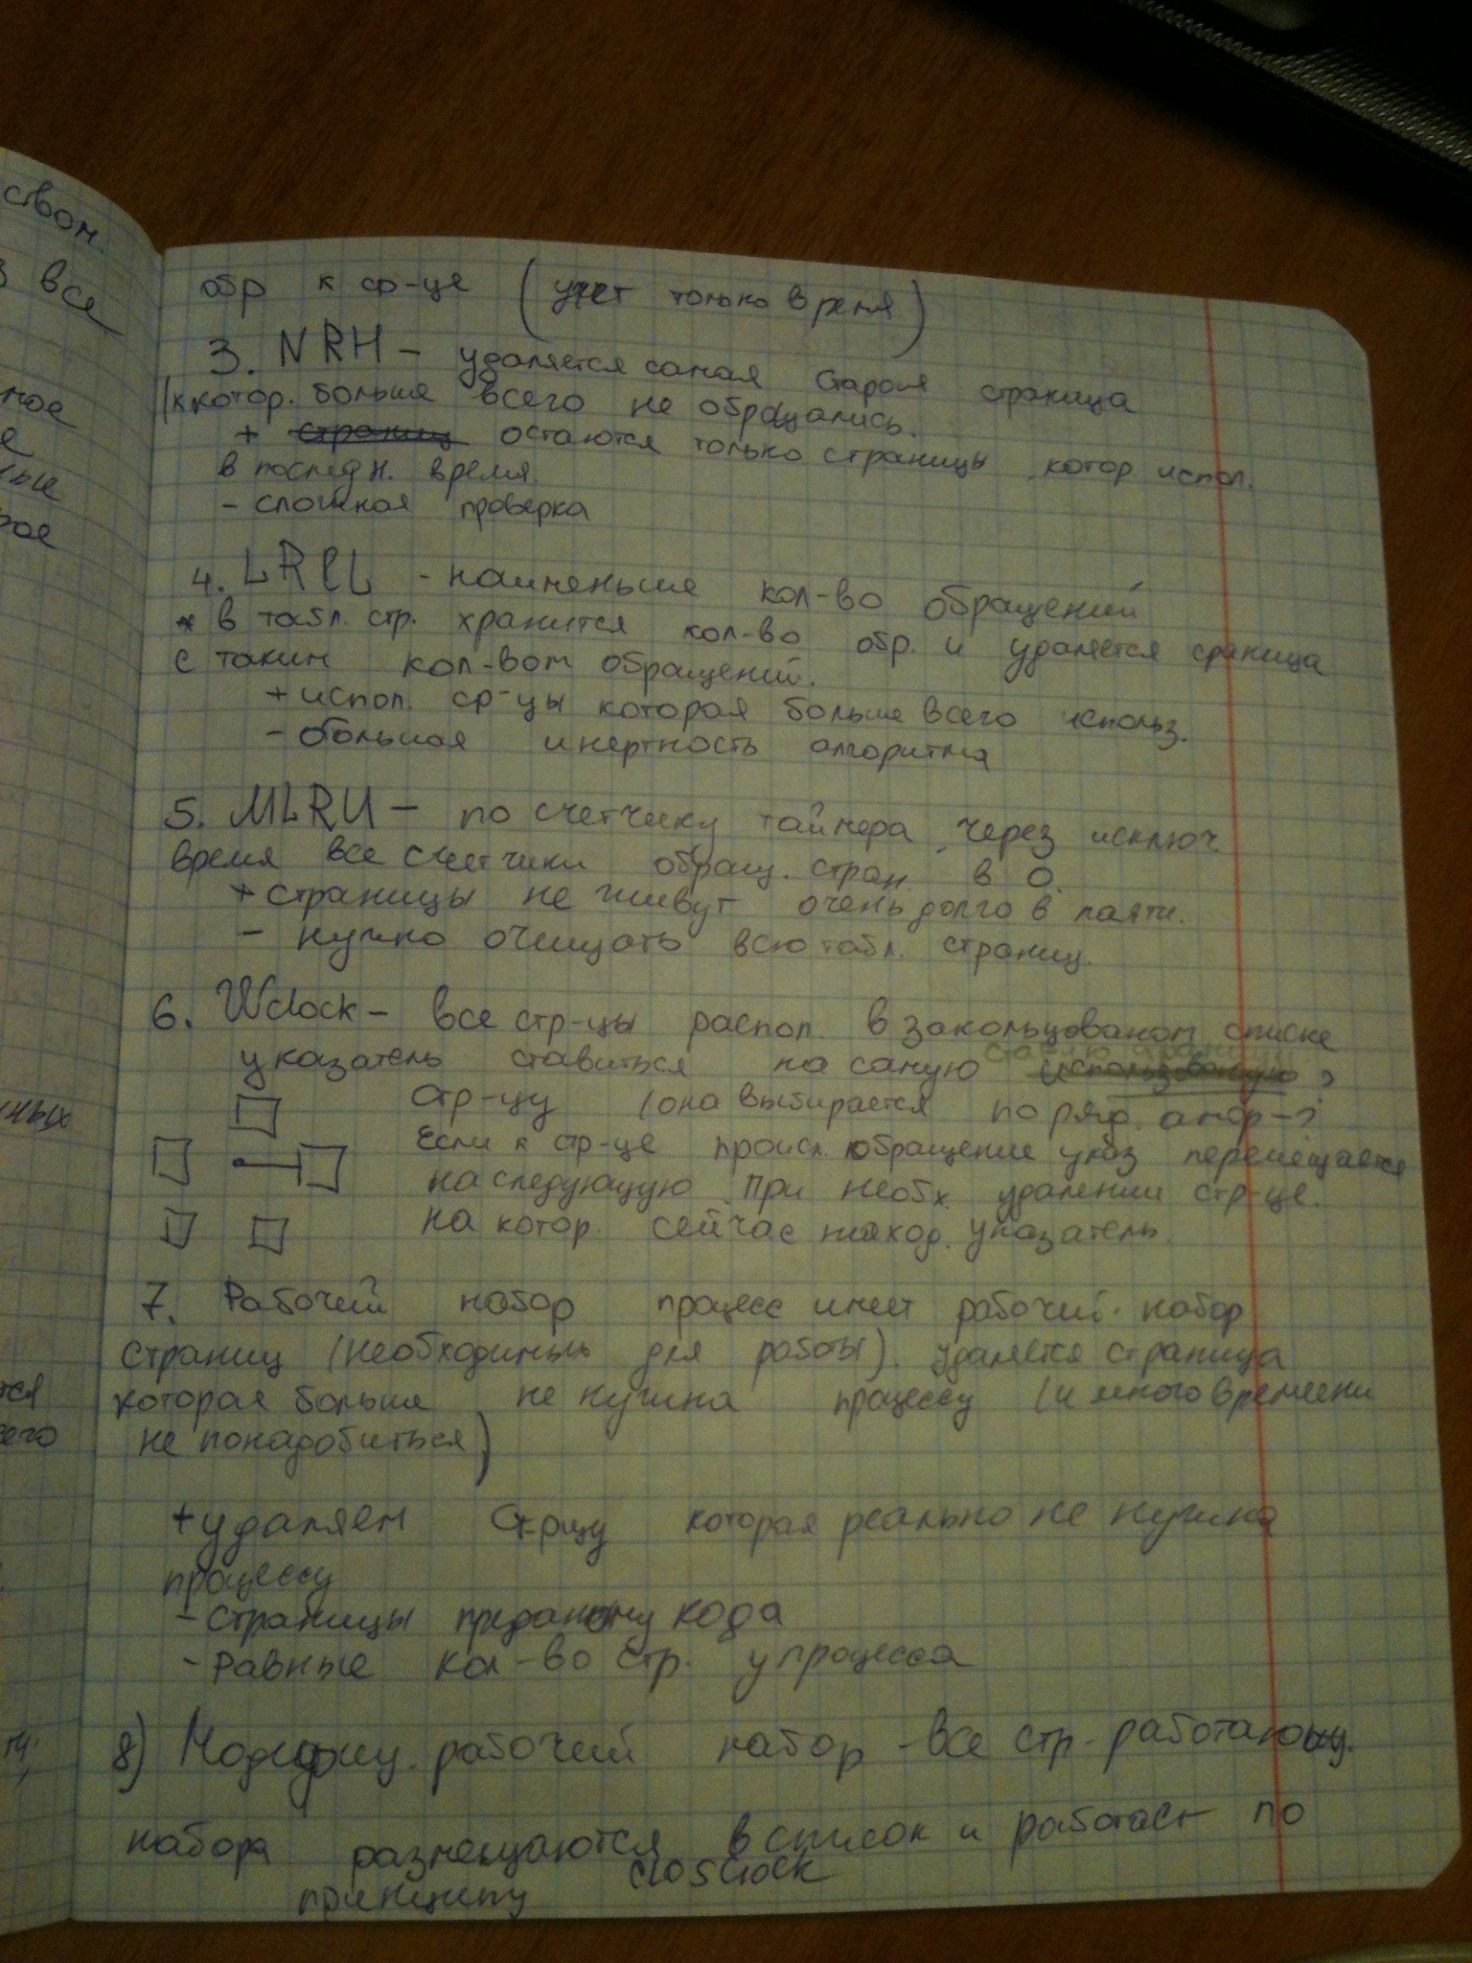 ством.
з все
ное
е
ные
рое
нных
тся
его
обр к ср-це (учет только время)
3. NRH - удаляется самая старая страница
(к котор. больше всего не обращались.
+ остаются только страницы котор испол.
в последн. время
- сложная проверка
4. - наименьше кол-во обращений
* в табл. стр. хранится кол-во обр. и удаляется сраница
с таким кол-вом обращений.
+ испол. ср-цы которая больше всего использ.
- большая инертность алгоритма
5. MLRU - по счетчику таймера, через исключ.
время все счетчики обращ. стран в 0.
+ страницы не живут очень долго в паяти.
- нужно очищать всю табл. страниц.
6. Wclock - все стр-цы распол. в закольцованом списке
указатель ставиться на самую
стр-цу (она выбирается по
Если к стр-це происх. обращение указ перемещается
на следующую. При необх. удалении стр-це.
на котор. сейчас наход. указатель
7. Рабочий набор процесс имеет рабочий набор
страниц (необходимых для работы). удаляется страница
которая больше не нужна процессу (и много времени
не понадобиться)
+ удаляем стрцу которая реально не нужна
процессу
- страницы кода
- Равные кол-во стр. у процесса
8) Модифиц. рабочий набор - все стр.
набора размещаются в список и работает по
принципу